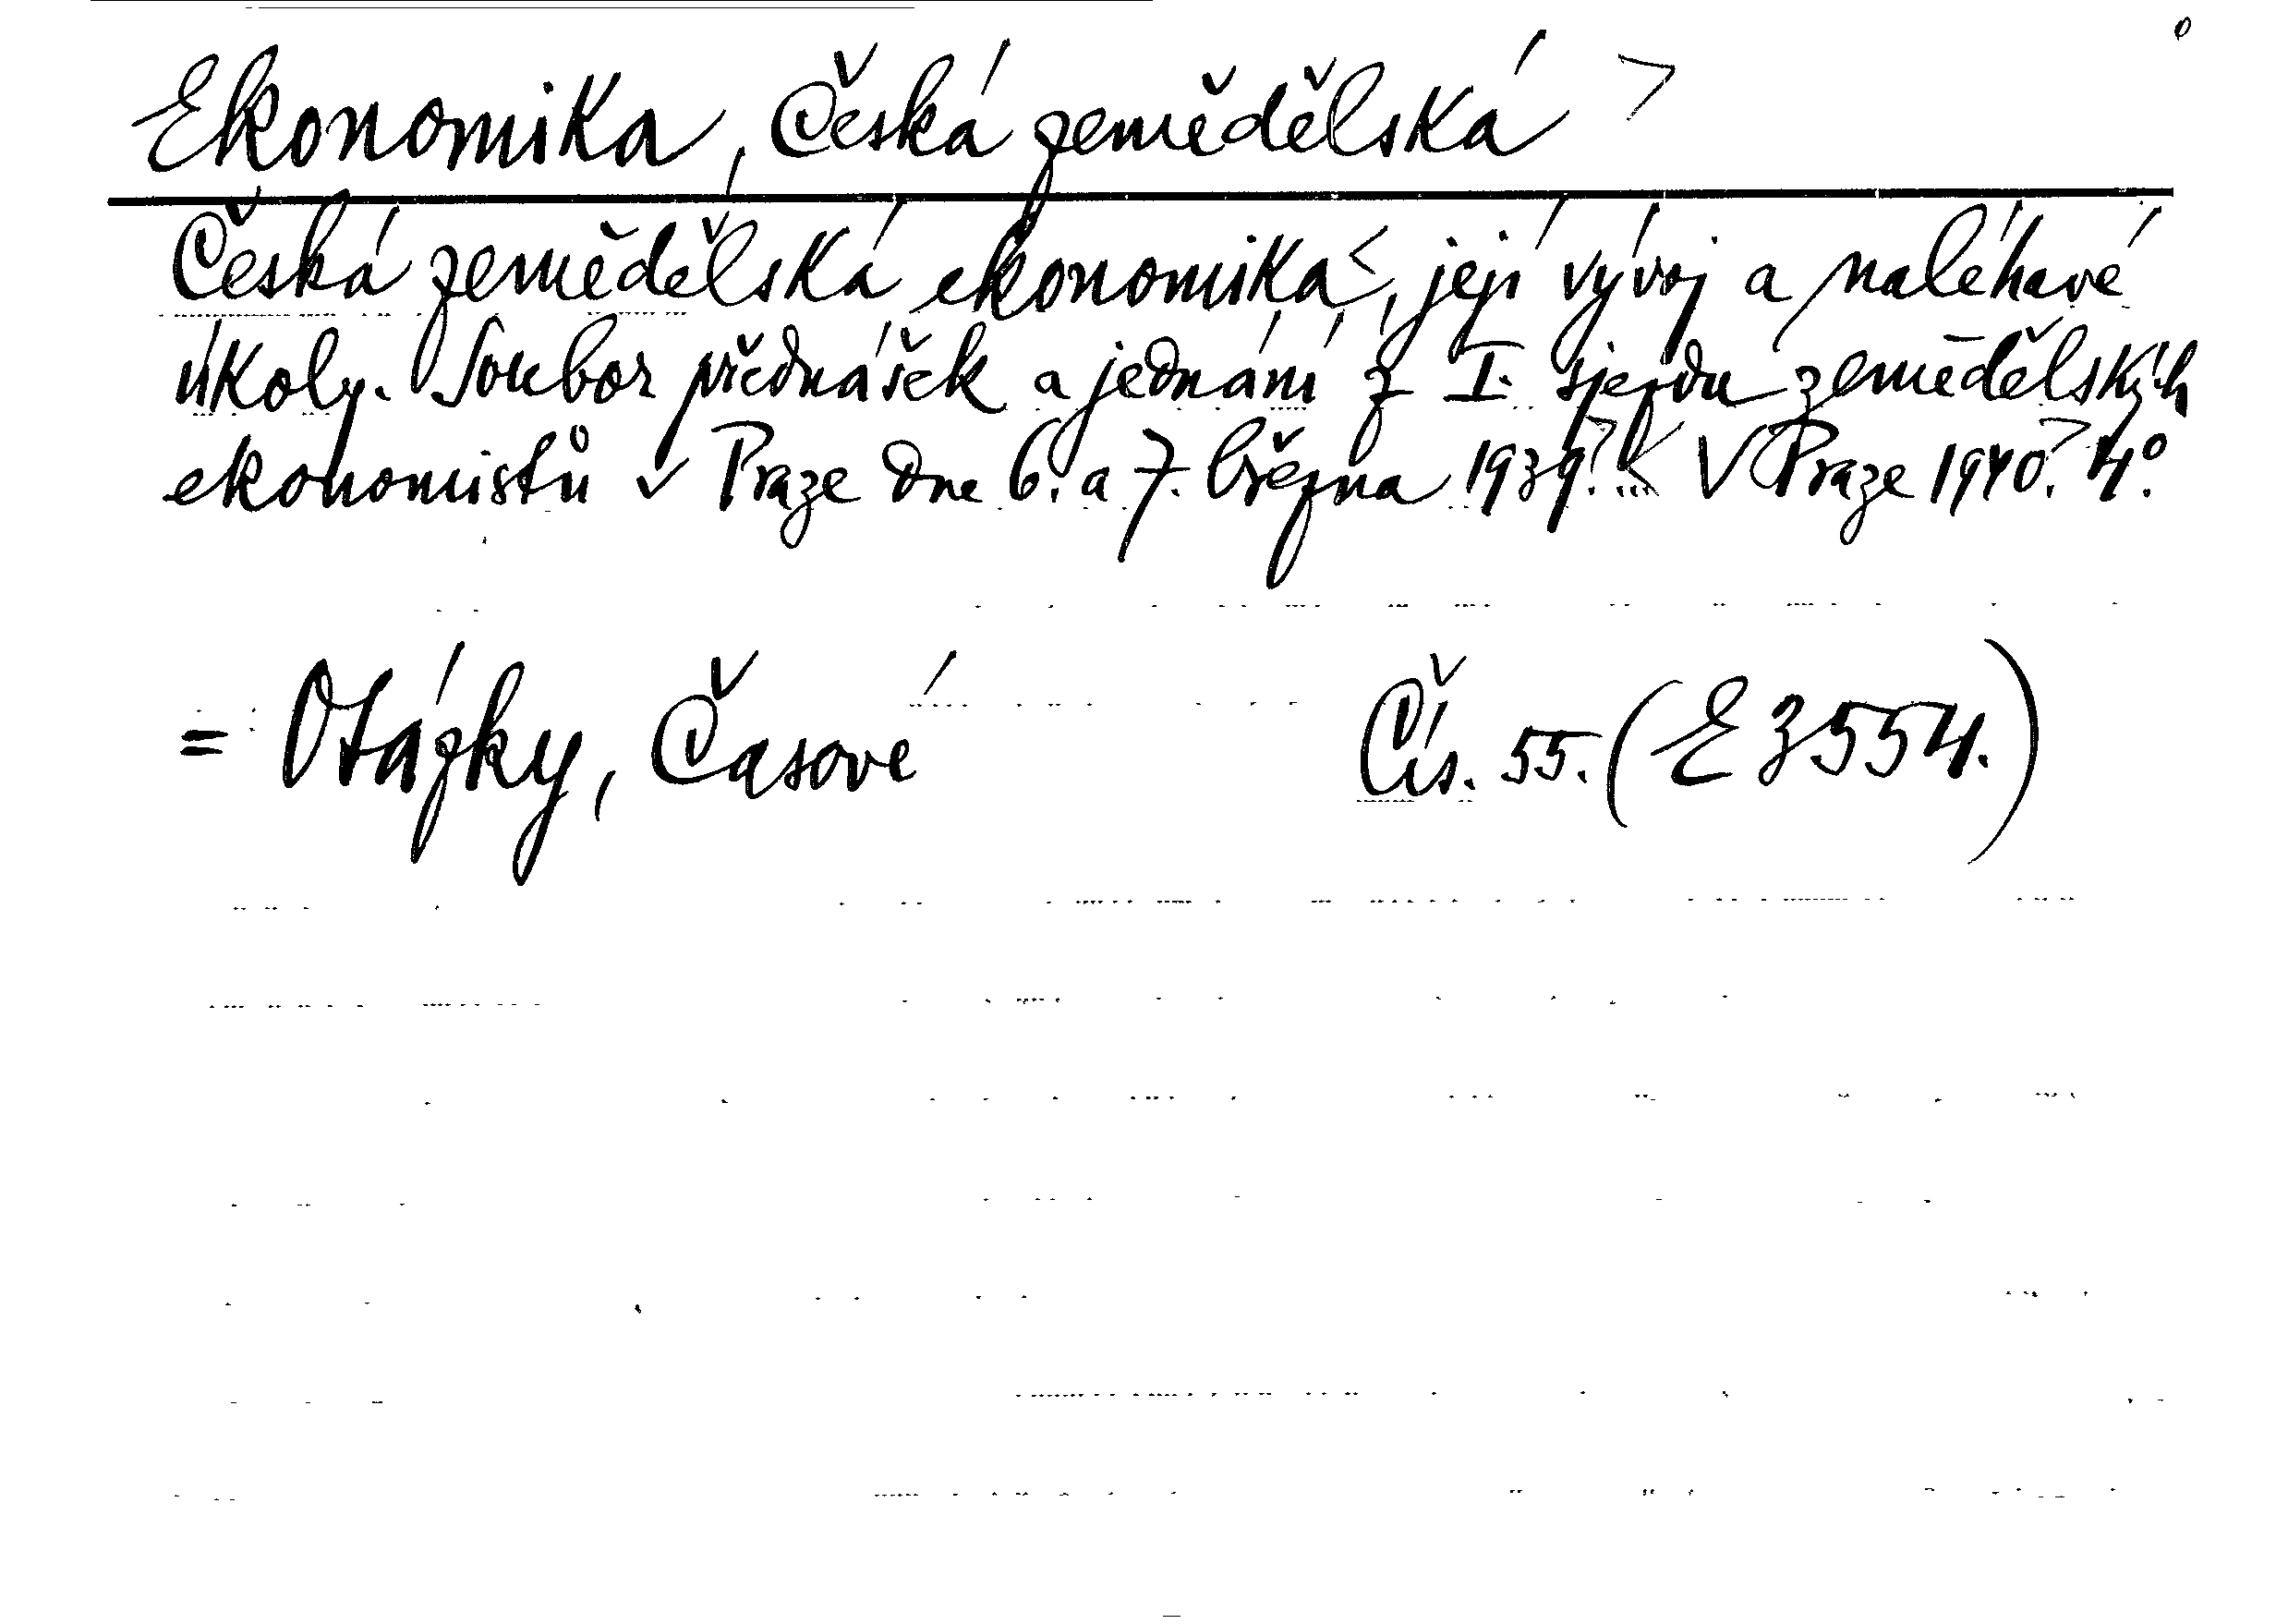 Ekonomika, Česká zemědělská >
Česká zemědělská ekonomika<, její vývoj a naléhavé
úkoly. Soubor přednášek a jednání z I. sjezdu zemědělských
ekonomistů v Praze dne 6. a 7. března 1939.>...< V Praze 1940.> 4°.
= Otázky, Časové Čís. 55. (E 3554.)